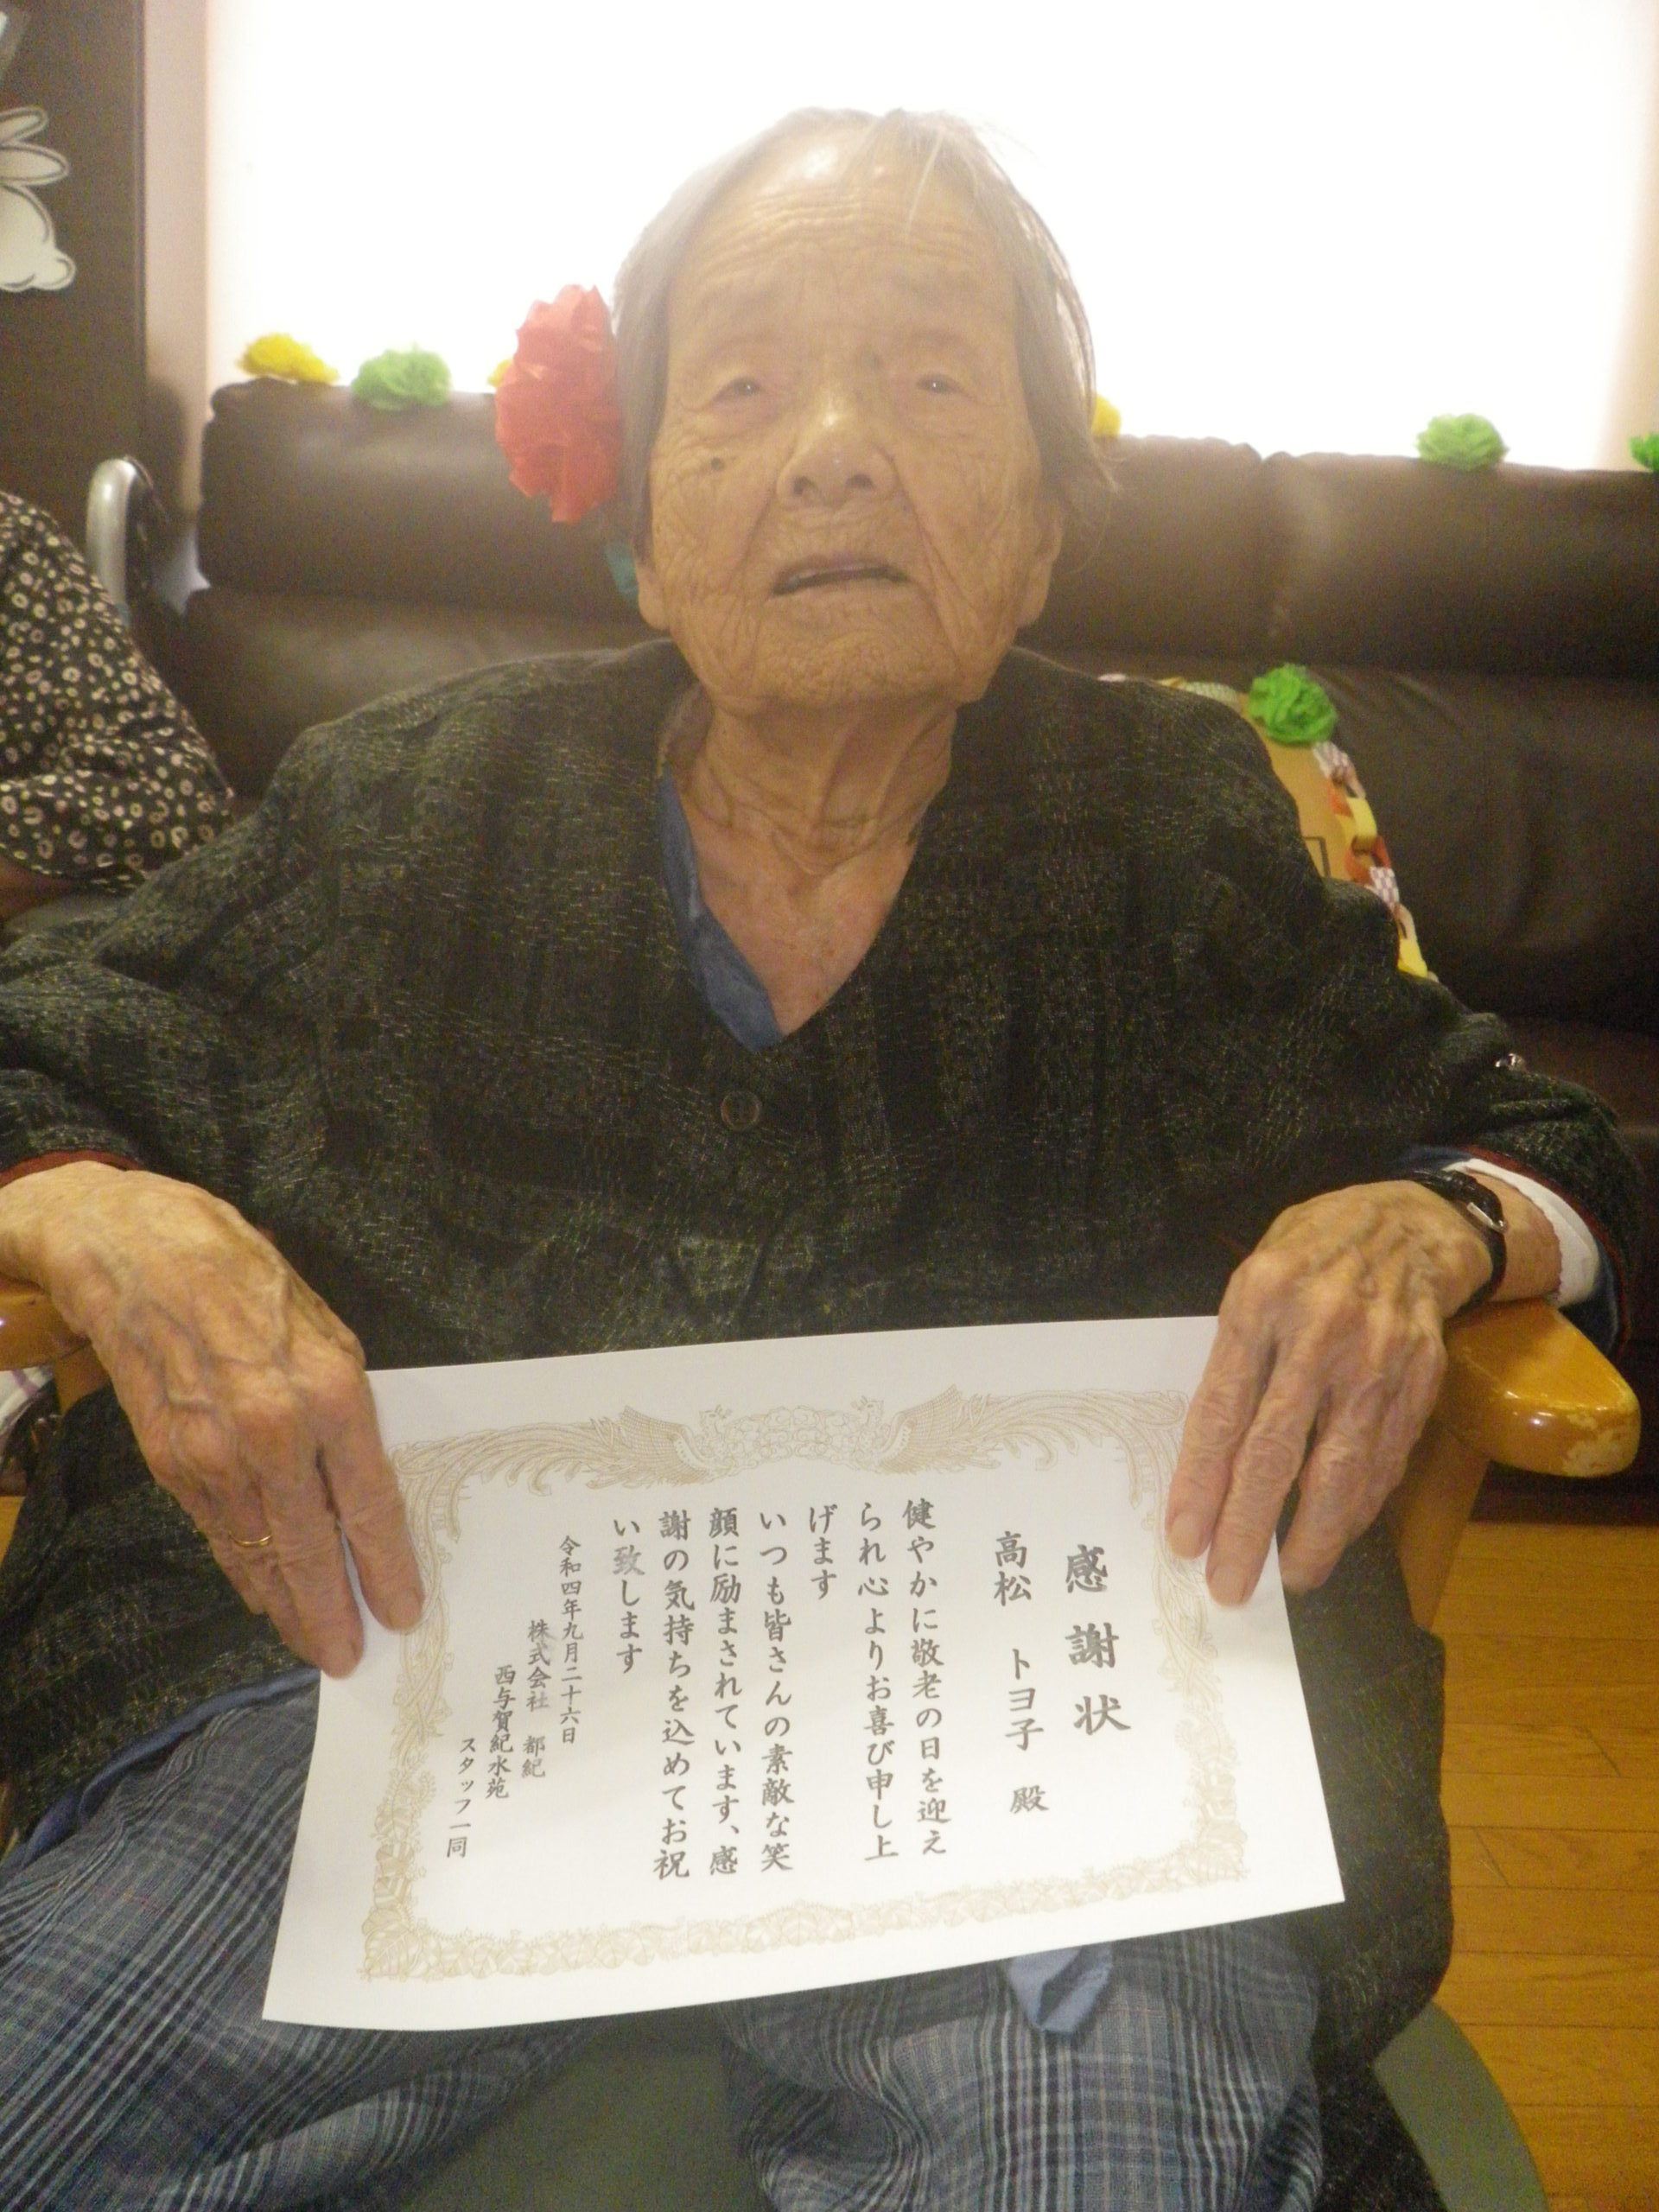 感謝状
高松 トヨ子 殿
健やかに敬老の日を迎え
られ心よりお喜び申し上
げます
いつも皆さんの素敵な笑
顔に励まされています、感
謝の気持ちを込めてお祝
い致します
令和四年九月二十六日
株式会社 都紀
西与賀紀水苑
スタッフ一同